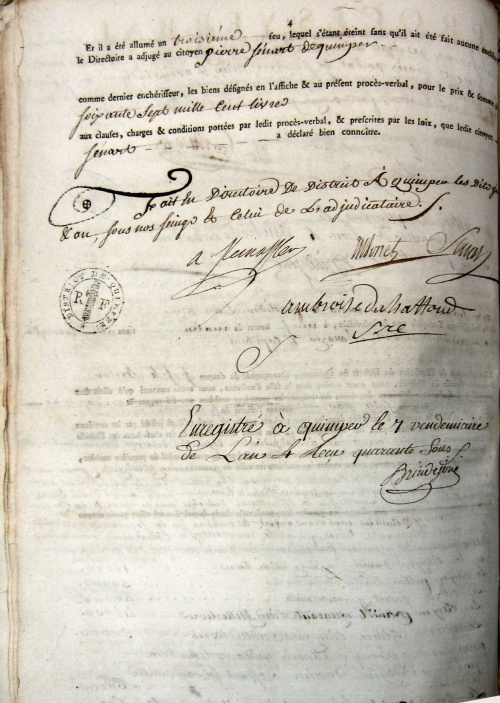 4
Et il a été allumé un troisième feu, lequel s'étant éteint sans qu'il ait été fait aucune
le Directoire a adjugé au citoyen pierre sénart de quimper
comme dernier enchérisseur, les biens désignés en l'affiche & au présent procès-verbal, pour le prix & somme
soixante Sept mille Cent livres
aux clauses, charges & conditions portées par ledit procès-verbal, & prescrites par les loix, que ledit citoyen
sénart a déclaré bien connoître.
fait en Directoire De District A quimper les Dits
& an, sous nos seings & Celui de L'adjudicataire.
DISTRICT DE QUIMPER
R F
Enregistré à quimper le 7 vendemiaire
de L'an 4 Reçu quarante Sous